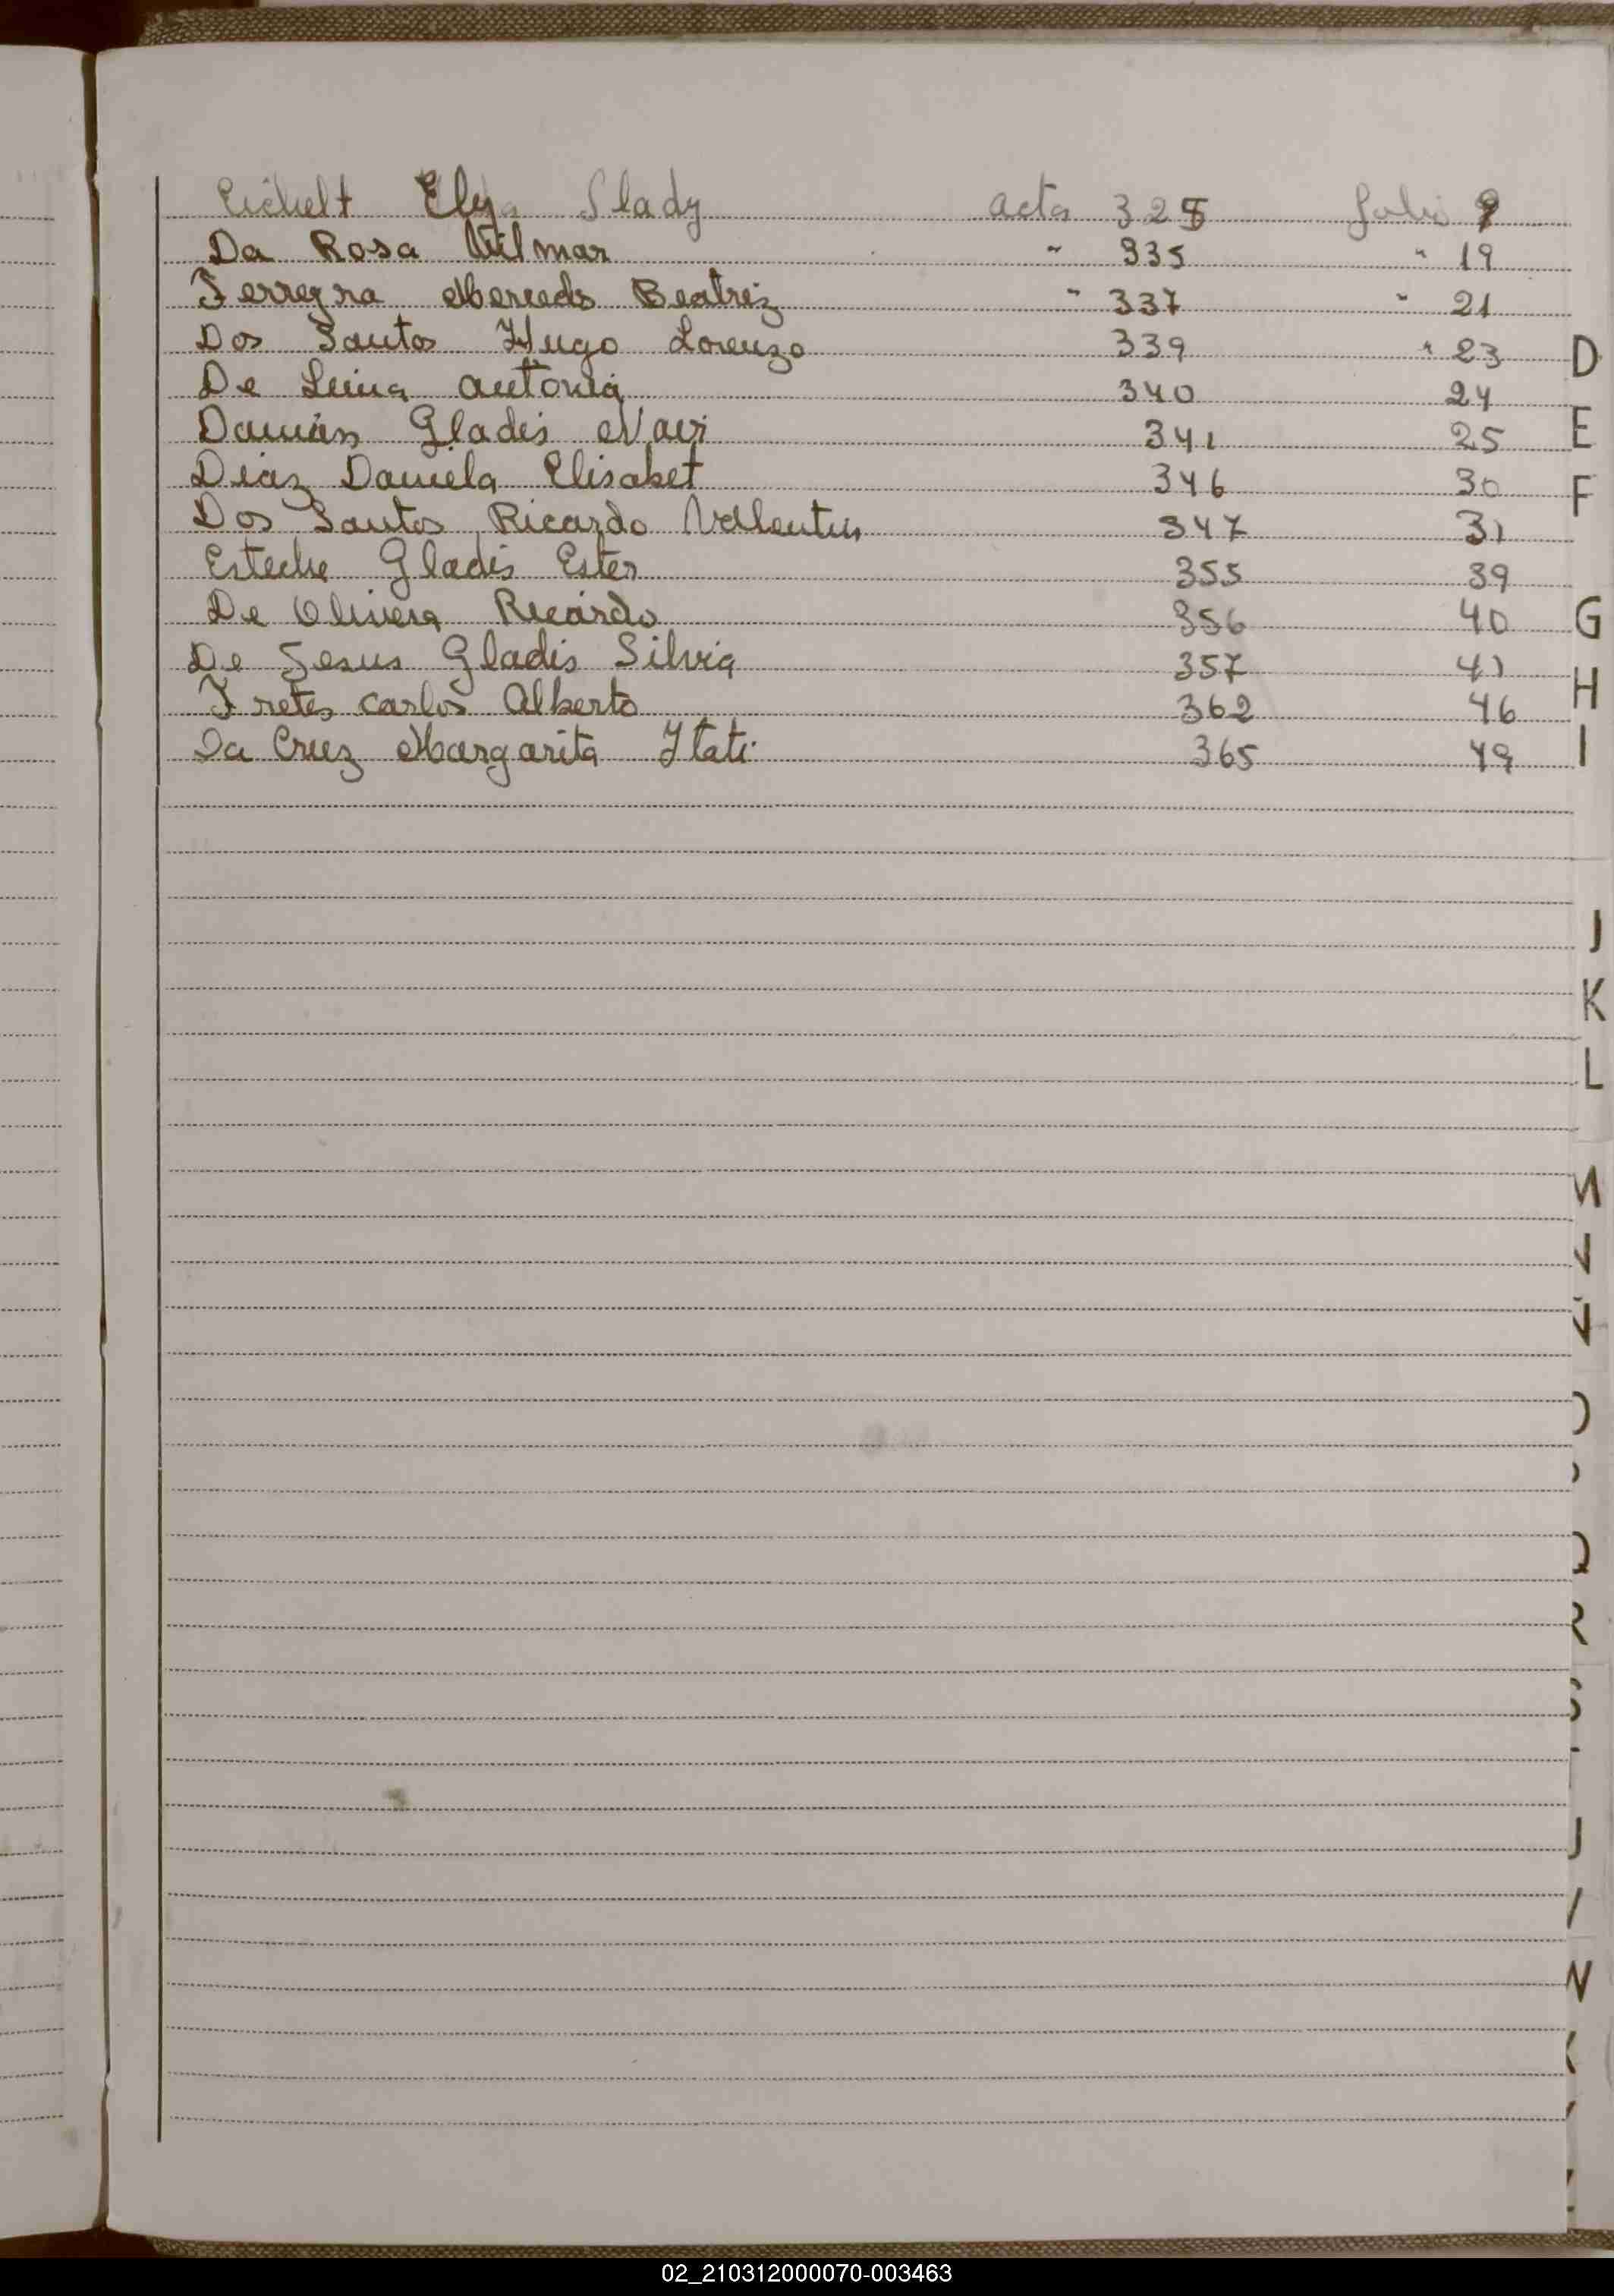 Eichelt Ely Slady acta 325 folio 9
Da Rosa Wilmar " 335 " 19
Ferreyra Mercedes Beatriz " 337 " 21
Dos Santos Hugo Lorenzo 339 " 23
De Lima Antonia 340 24
Damián Gladis Navi 341 25
Diaz Daniela Elisabet 346 30
Dos Santos Ricardo Vallentin 347 31
Esteche Gladis Ester 355 39
De Olivera Ricardo 356 40
De Jesus Gladis Silvia 357 41
Fretes Carlos Alberto 362 46
Da Cruz Margarita Itati 365 49
D
E
F
G
H
I
J
K
L
M
N
Ñ
O
Q
R
S
02_210312000070-003463